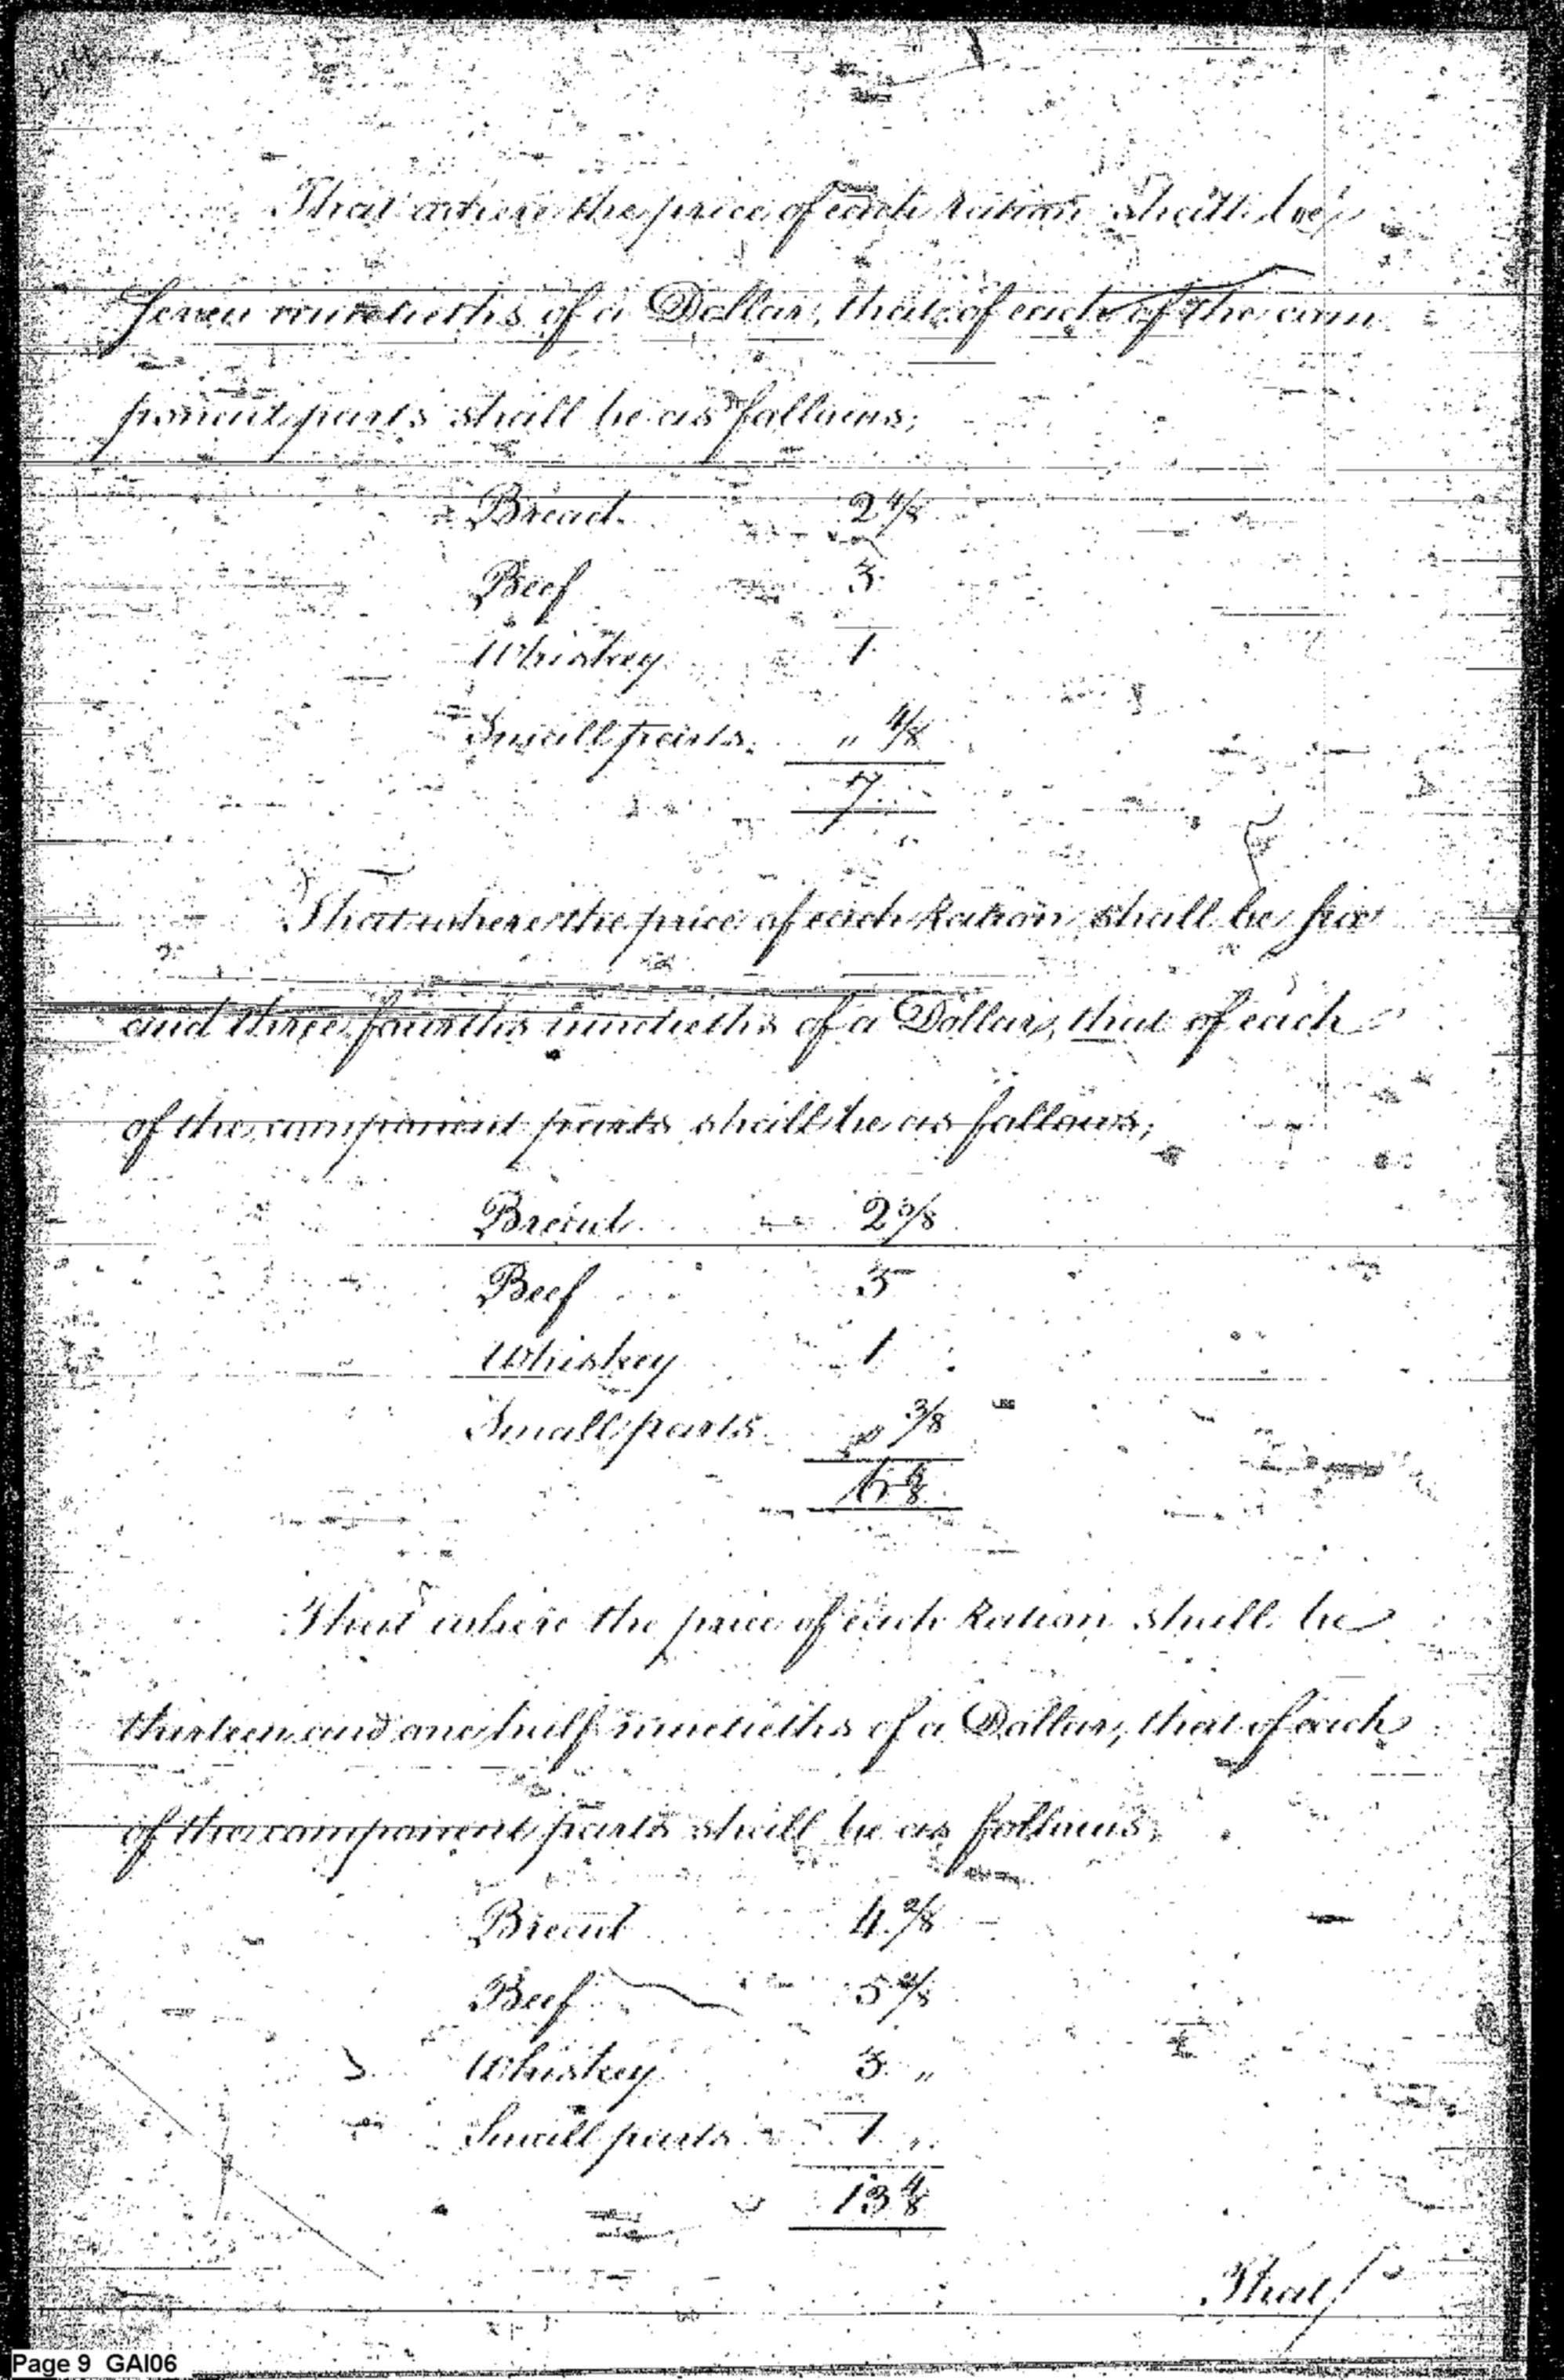 That where the price of each Ration shall be
Seven ninetieths of a Dollar, that of each of the com
ponent parts shall be as follows;
Bread 2 4/8
Beef 3
Whiskey 1
Small parts „ 4/8
7
That where the price of each Ration shall be six
and three fourths ninetieths of a Dollar, that of each
of the component parts shall be as follows;
Bread 2 3/8
Beef 3
Whiskey 1
Small parts „ 3/8
6 6/8
That where the price of each Ration shall be
thirteen and one half ninetieths of a Dollar, that of each
of the component parts shall be as follows;
Bread 4 2/8
Beef 5 2/8
Whiskey 3 „
Small parts 1 „
13 4/8
That
Page 9 GAI06